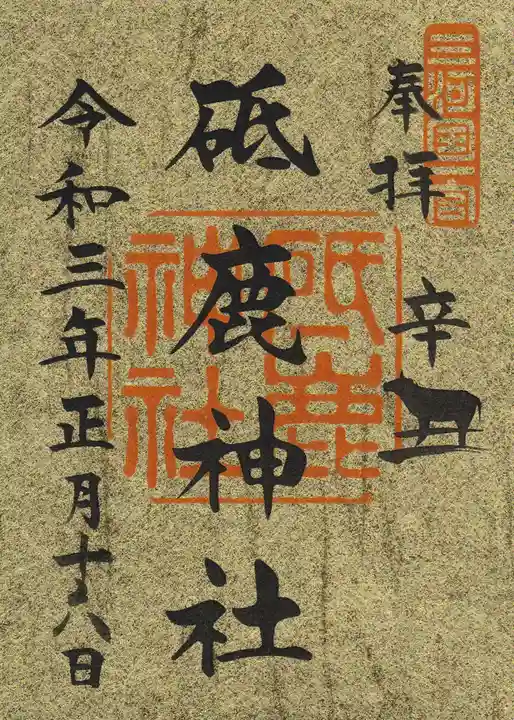 三河国一宮
奉拝
辛丑
砥鹿神社
砥鹿
神社
令和三年正月十八日